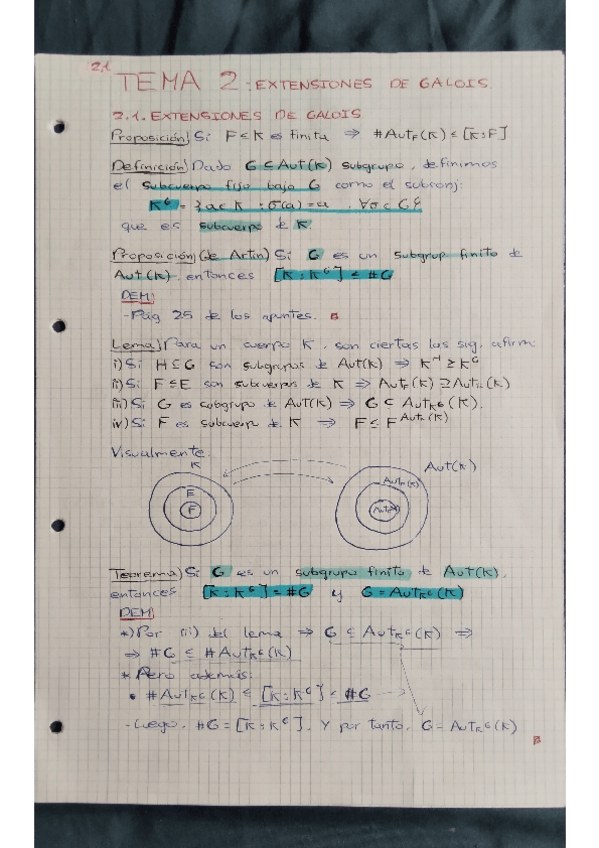 2.1
TEMA 2: EXTENSIONES DE GALOIS
2.1. EXTENSIONES DE GALOIS
Proposición) Si F ≤ K es finita ⇒ #Aut_F(K) ≤ [K:F]
Definición) Dado G ⊆ Aut(K) subgrupo, definimos
el subcuerpo fijo bajo G como el subconj:
K^G = {a ∈ K : σ(a) = a , ∀σ ∈ G}
que es subcuerpo de K.
Proposición (de Artin) Si G es un subgrup finito de
Aut(K), entonces [K:K^G] ≤ #G
DEM)
- Pág 25 de los apuntes.
Lema) Para un cuerpo K, son ciertas las sig. afirm:
i) Si H ≤ G son subgrupos de Aut(K) ⇒ K^H ≥ K^G
ii) Si F ≤ E son subcuerpos de K ⇒ Aut_F(K) ⊇ Aut_E(K)
iii) Si G es subgrupo de Aut(K) ⇒ G ⊆ Aut_{K^G}(K).
iv) Si F es subcuerp de K ⇒ F ≤ F^{Aut_F(K)}
Visualmente:
K
Aut(K)
Aut_F(K)
E
F
Teorema) Si G es un subgrupo finito de Aut(K),
entonces [K:K^G] = #G y G = Aut_{K^G}(K)
DEM)
*) Por iii) del lema ⇒ G ⊆ Aut_{K^G}(K) ⇒
⇒ #G ≤ #Aut_{K^G}(K)
* Pero además:
• #Aut_{K^G}(K) ≤ [K:K^G] ≤ #G
- Luego, #G = [K:K^G]. Y por tanto, G = Aut_{K^G}(K)